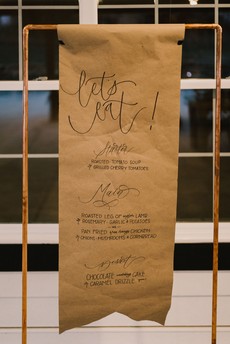 let's
eat!
ROASTED TOMATO SOUP
GRILLED CHERRY TOMATOES
Main
ROASTED LEG OF LAMB
ROSEMARY - GARLIC & POTATOES
PAN FRIED CHICKEN
ONIONS - MUSHROOMS & CORNBREAD
CHOCOLATE CAKE
CARAMEL DRIZZLE